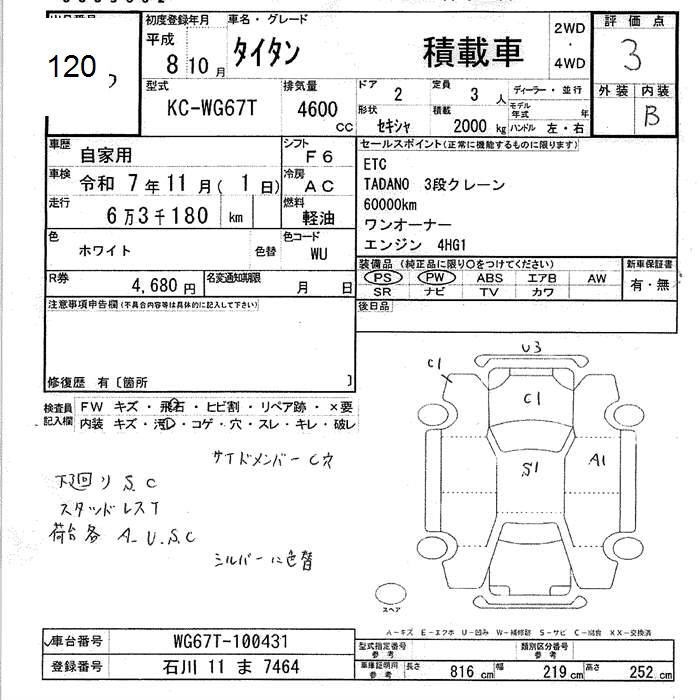 120
初度登録年月
平成
8 10 月
車名・グレード
タイタン
積載車
2WD
・
4WD
評価点
3
外装 内装
B
型式
KC-WG67T
排気量
4600 cc
ドア
2
定員
3 人
ディーラー・並行
モデル年式 年
形状
セキシャ
積載
2000 kg
ハンドル 左・右
車歴
自家用
シフト
F6
車検
令和 7年11月( 1日)
冷房
AC
走行
6万3千180 km
燃料
軽油
色
ホワイト
色替
色コード
WU
R券
4,680 円
名変通知期限
月 日
セールスポイント(正常に機能するものに限ります)
ETC
TADANO 3段クレーン
60000km
ワンオーナー
エンジン 4HG1
装備品(純正品に限り○をつけてください)
PS PW ABS エアB AW
SR ナビ TV カワ
新車保証書
有・無
後日品
注意事項申告欄(不具合内容等は具体的に記入して下さい)
修復歴 有〔箇所 〕
検査員
記入欄
FW キズ・飛石・ヒビ割・リペア跡・×要
内装 キズ・汚れ・コゲ・穴・スレ・キレ・破レ
サイドメンバーC穴
下廻りS.C
スタッドレスT
荷台各 A.U.S.C
シルバーに色替
U3
C1
C1
S1
A1
スペア
A-キズ E-エクボ U-凹み W-補修跡 S-サビ C-腐食 XX-交換済
車台番号
WG67T-100431
登録番号
石川 11 ま 7464
型式指定番号
参考
類別区分番号
参考
車庫証明用
参考
長さ
816 cm
幅
219 cm
高さ
252 cm